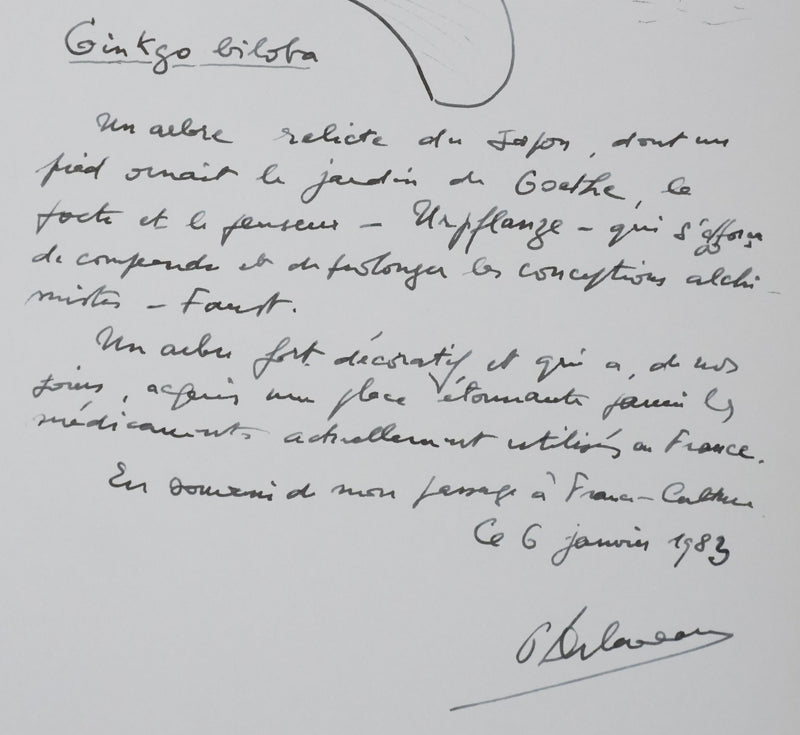 Ginkgo biloba
Un arbre relicte du Japon, dont un
pied ornait le jardin de Goethe, le
poète et le penseur — Urpflanze — qui s'efforça
de comprendre et de prolonger les conceptions alchi-
mistes — Faust.
Un arbre fort décoratif et qui a, de nos
jours, acquis une place étonnante parmi les
médicaments actuellement utilisés en France.
En souvenir de mon passage à France-Culture
Ce 6 janvier 1983
P Delaveau